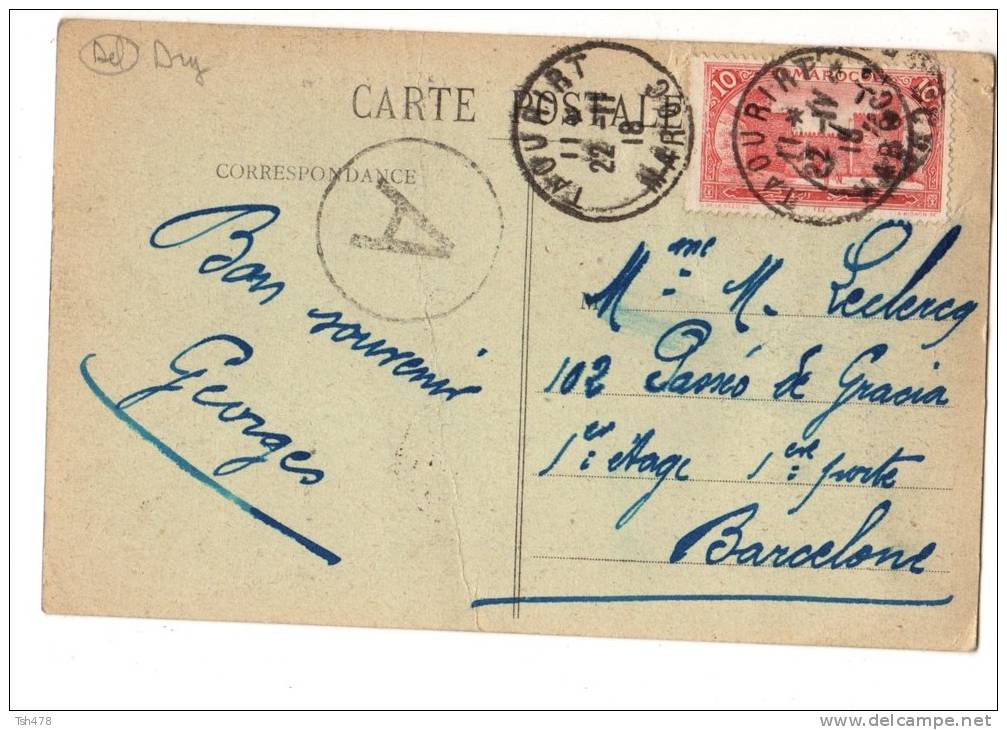 Del Dry
CARTE POSTALE
CORRESPONDANCE
A
TAOURIRT
11 *
22 -11
18
MAROC
10 MAROC 10
TAOURIRT
11 *
22 -11
18
MAROC
Bon souvenir
Georges
M
Mme M. Leclercq
102 Passéo de Gracia
1er étage 1ère porte
Barcelone
Tsh478
www.delcampe.net